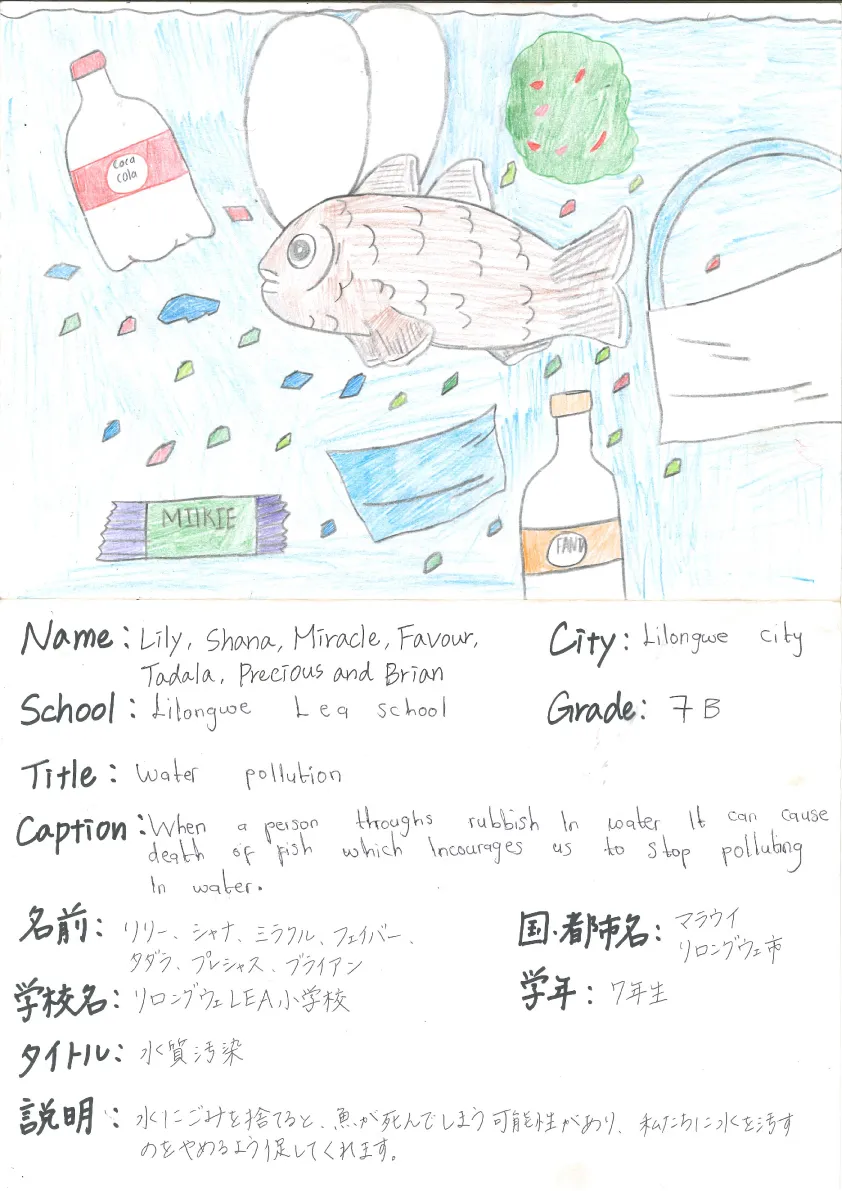 Coca
cola
MIIKIE
FANTA
Name: Lily, Shana, Miracle, Favour,
Tadala, Precious and Brian
City: Lilongwe city
School: Lilongwe Lea school
Grade: 7B
Title: Water pollution
Caption: When a person throughs rubbish In water It can cause
death of fish which Incourages us to stop polluting
In water.
名前: リリー、シャナ、ミラクル、フェイバー、
タダラ、プレシャス、ブライアン
国・都市名: マラウイ
リロングウェ市
学校名: リロングウェLEA小学校
学年: 7年生
タイトル: 水質汚染
説明: 水にごみを捨てると、魚が死んでしまう可能性があり、私たちに水を汚す
のをやめるよう促してくれます。